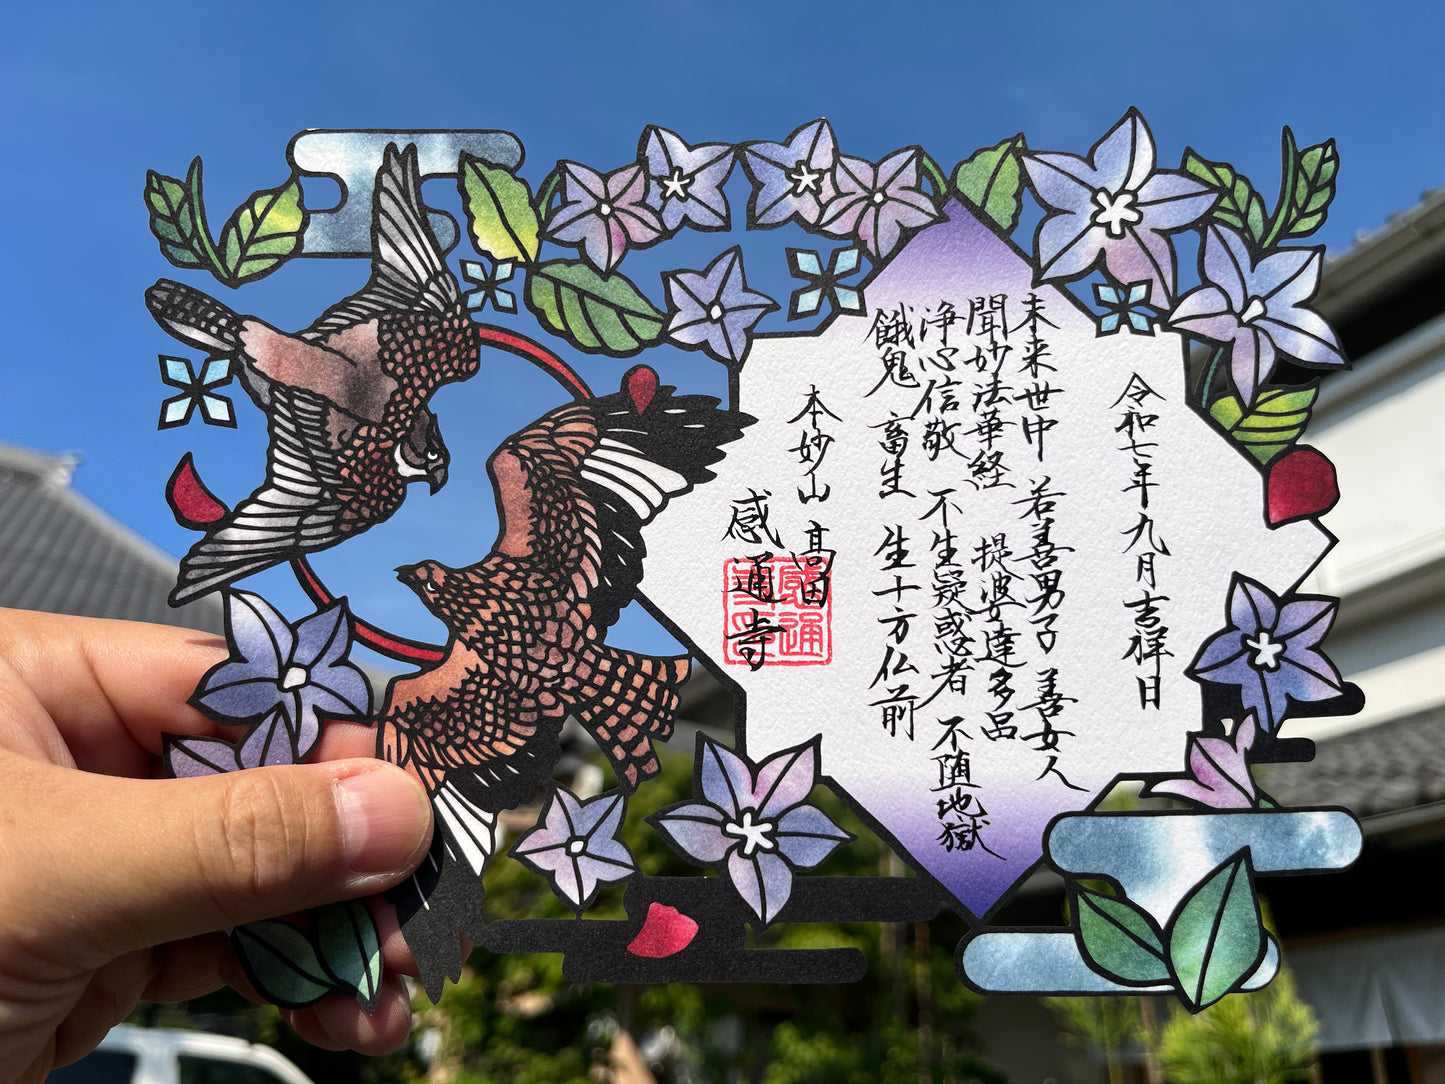 令和七年九月吉祥日
未来世中 若善男子 善女人
聞妙法華経 提婆達多品
浄心信敬 不生疑惑者 不堕地獄
餓鬼 畜生 生十方仏前
本妙山 高田
感通寺
感通